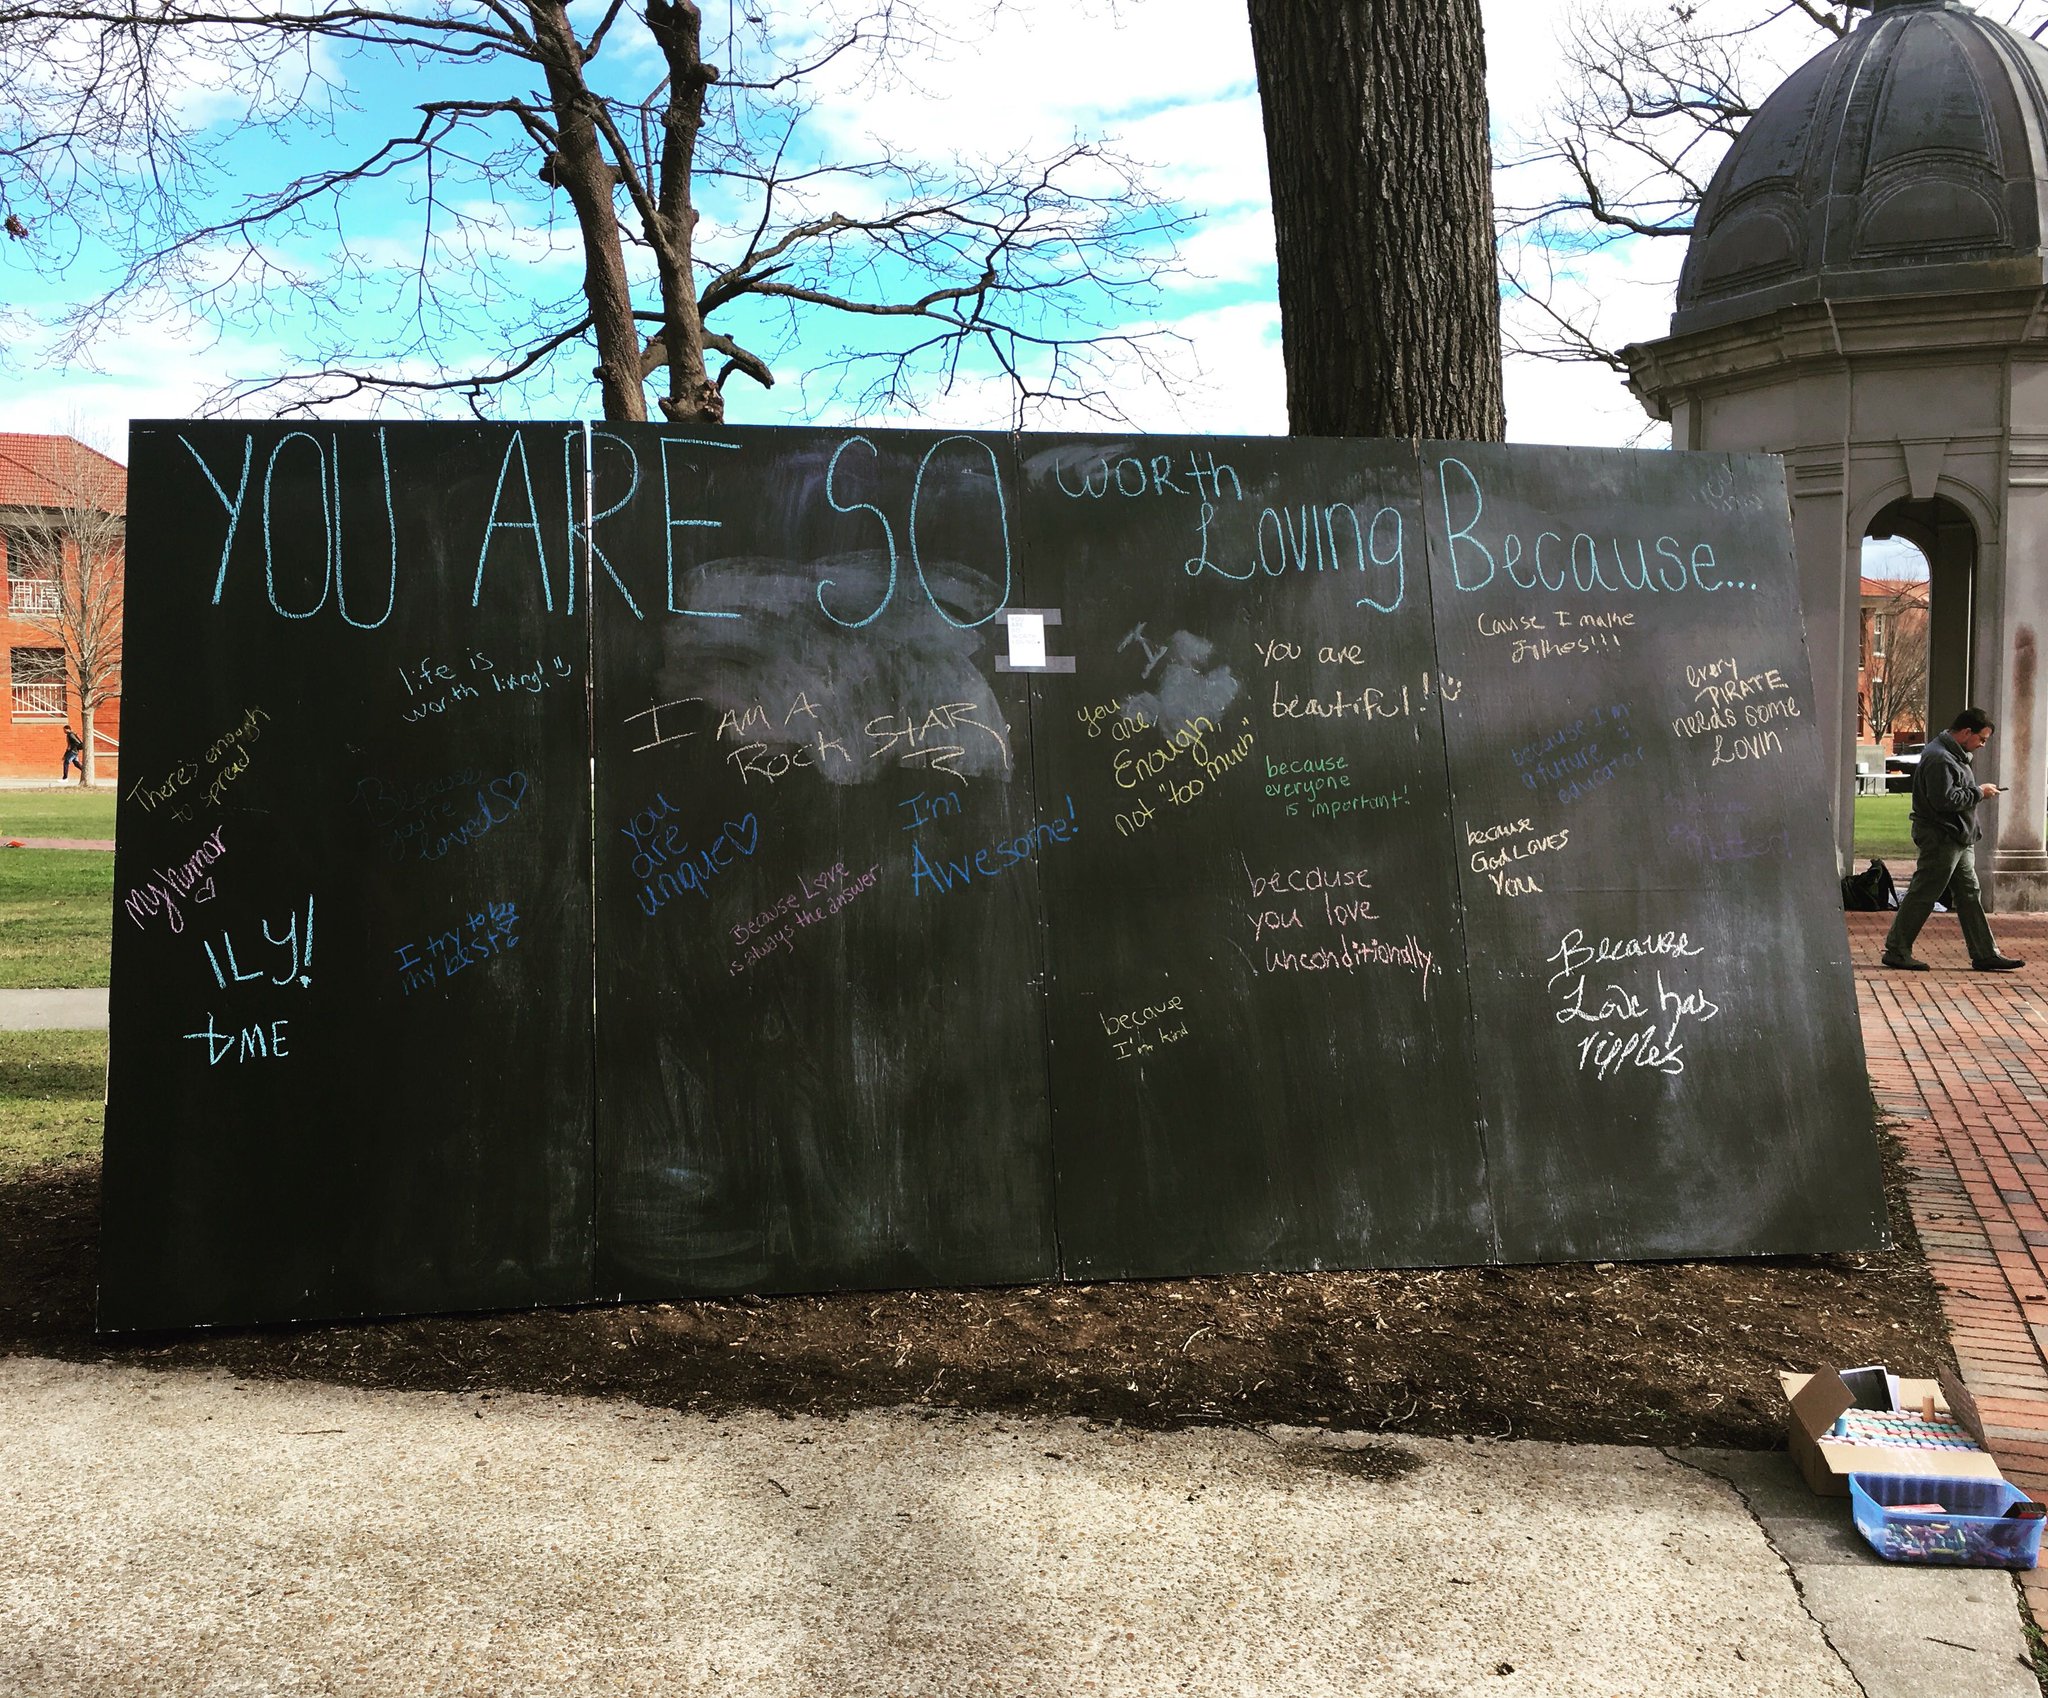 YOU ARE SO WORth
Loving Because...
life is
worth living!
There's enough
to spread
My humor
ILY!
ME
Because
you're
loved
I try to be
my best
I AM A
ROCK STAR
you
are
unique
Because Love
is always the answer.
I'm
Awesome!
you
are
Enough,
not "too much"
You are
beautiful!
because
everyone
is important!
because
you love
unconditionally..
because
I'm kind
Cause I make
every
PIRATE
needs some
Lovin
because I'm
a future
educator
because
God Loves
You
matter!
Because
Love has
ripples